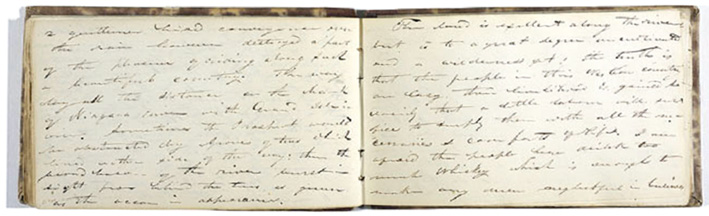 a gentleman hired conveyance over
the rain however destroyed a part
of the pleasure of riding along such
a beautiful country. The way
lay all the distance on the bank
of Niagara River with Grand Island in
view. Sometimes the Prospect would
be obstructed by groves of trees which
lines either side of the way; then the
of the river burst
sight from behind the trees as
as the ocean in appearance.
The land is excellent along the river
but is to a great degree uncultivated
and a wilderness yet; the truth is
that the people in this section country
are lazy, their livelihood is gained so
easily that a little labour will suf
fice to supply them with all the ne
cessaries & comforts of life. I am
afraid the people here drink too
much Whisky which is enough to
make any man neglectful in business